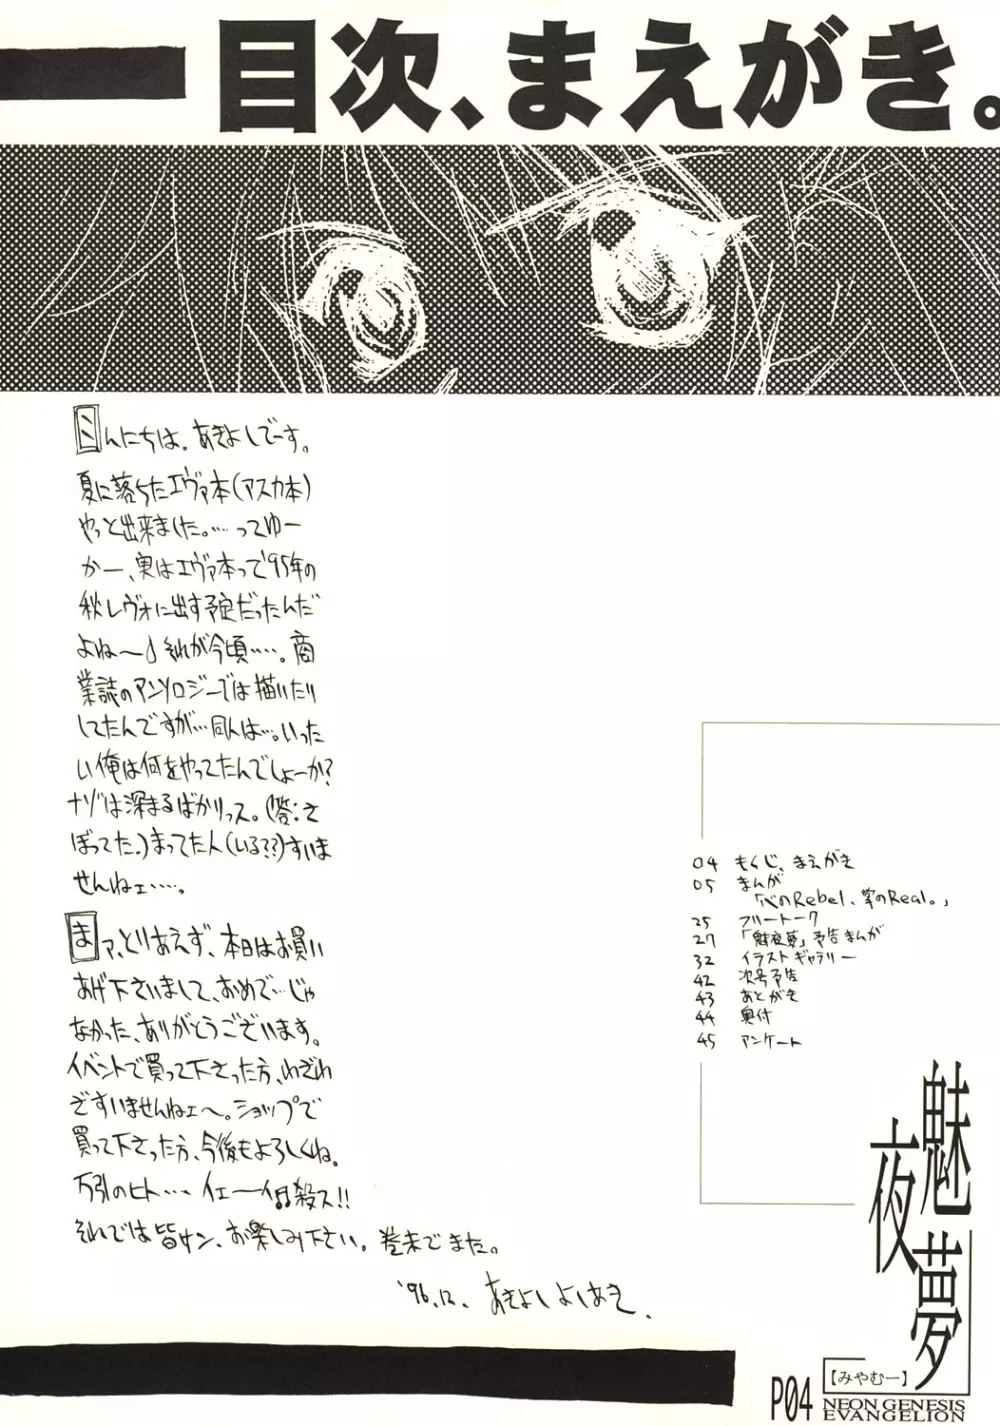 目次、まえがき。
こんにちは。あきよしでーす。
夏に落ちたエヴァ本(アスカ本)
やっと出来ました。……ってゆー
かー、実はエヴァ本って'95年の
秋レヴォに出す予定だったんだ
よね〜♪それが今頃……。商
業誌のアンソロジーでは描いたり
してたんですが…同人は…。いった
い俺は何をやってたんでしょーか?
ナゾは深まるばかりっス。(答:さ
ぼってた。)まってた人(いる??)すいま
せんねェ……。
まァ、とりあえず、本日はお買い
あげ下さいまして、おめで…じゃ
なかった、ありがとうございます。
イベントで買って下さった方、わざわ
ざすいませんねェ〜。ショップで
買って下さった方、今後もよろしくね。
万引のヒト… イェーイ♫殺ス!!
それでは皆サン、お楽しみ下さい。巻末でまた。
'96.12. あきよしよしあき.
04 もくじ、まえがき
05 まんが
「心のRebel、掌のReal。」
25 フリートーク
27 「魅夜夢」予告まんが
32 イラストギャラリー
42 次号予告
43 あとがき
44 奥付
45 アンケート
魅夜夢
【みやむー】
NEON GENESIS
EVANGELION
P04